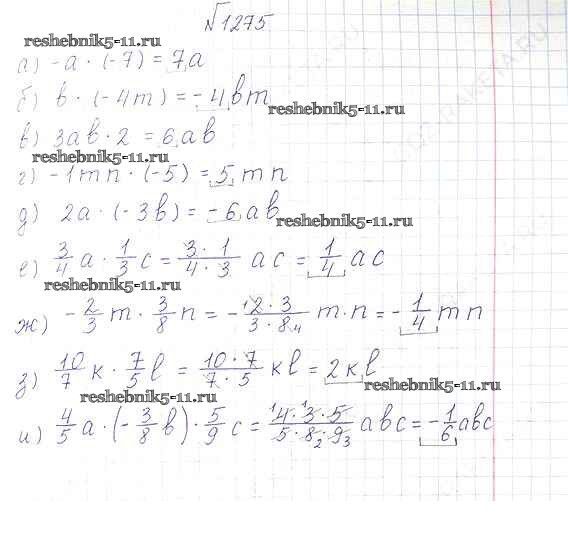 √1275
reshebnik5-11.ru
а) -a · (-7) = 7a
б) b · (-4m) = -4bm
reshebnik5-11.ru
в) 3ab · 2 = 6ab
reshebnik5-11.ru
г) -1mn · (-5) = 5mn
д) 2a · (-3b) = -6ab
reshebnik5-11.ru
е) 3/4 a · 1/3 c = 3 · 1 / 4 · 3 ac = 1/4 ac
reshebnik5-11.ru
ж) -2/3 m · 3/8 n = - 1 2 · 3 / 3 · 8 4 m · n = -1/4 mn
з) 10/7 k · 7/5 l = 10 · 7 / 7 · 5 kl = 2kl
reshebnik5-11.ru
reshebnik5-11.ru
и) 4/5 a · (-3/8 b) · 5/9 c = 1 4 · 1 3 · 5 / 5 · 8 2 · 9 3 abc = -1/6 abc